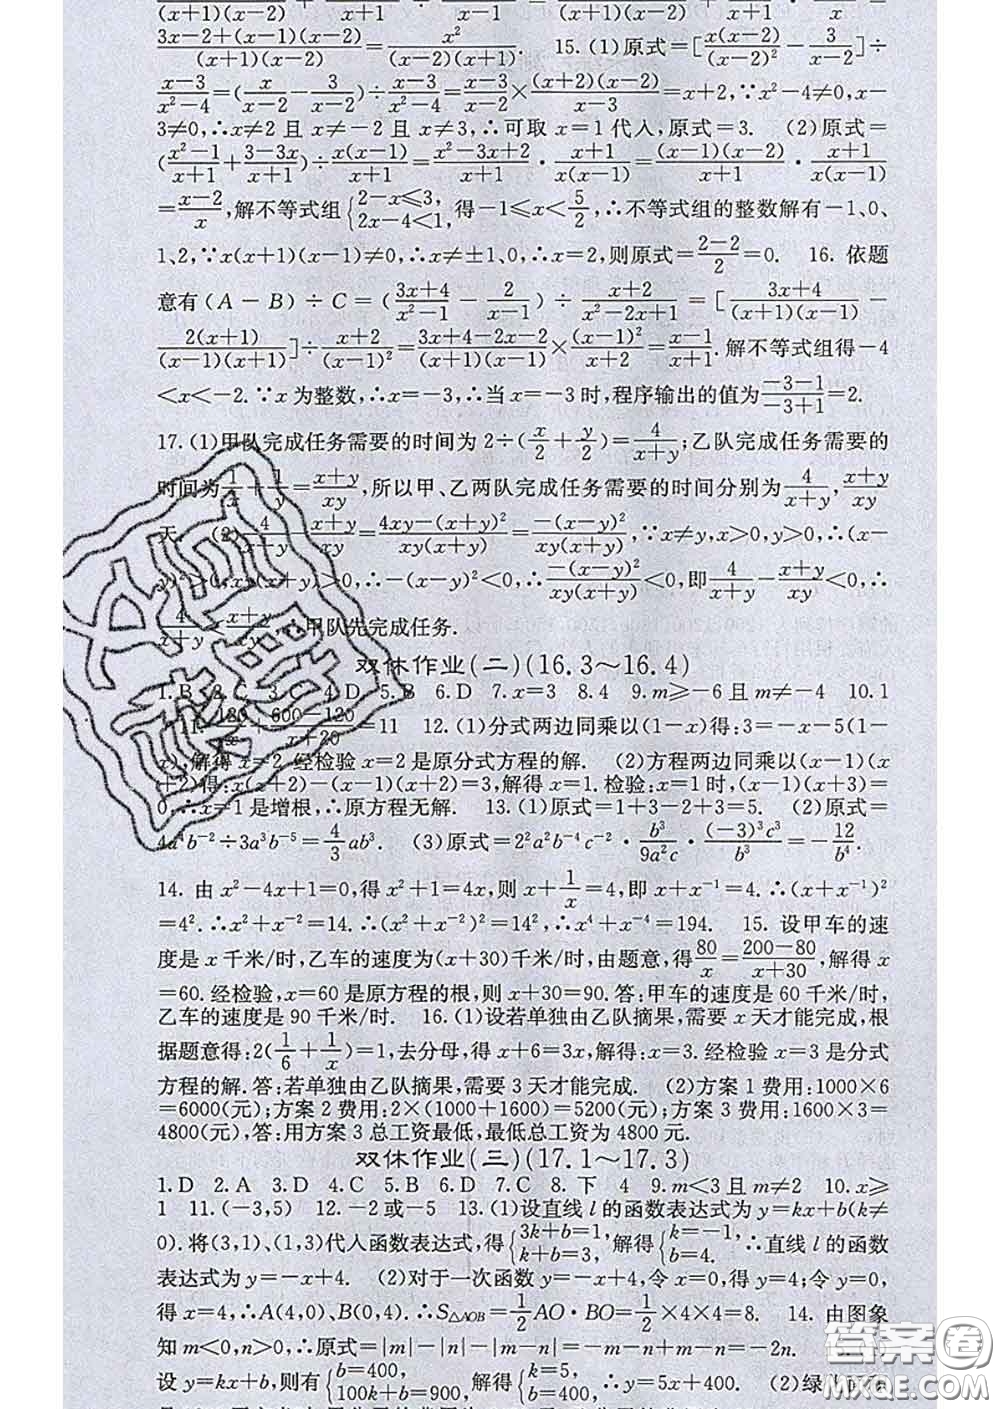 (x+1)(x-2) x+1 x-1 (x+1)(x-2) x+1 x
\frac{3x-2+(x-1)(x-2)}{(x+1)(x-2)}=\frac{x^2}{(x-2)(x+1)}. 15.(1)原式=[\frac{x(x-2)}{(x-2)^2}-\frac{3}{x-2}]÷
\frac{x-3}{x^2-4}=(\frac{x}{x-2}-\frac{3}{x-2})÷\frac{x-3}{x^2-4}=\frac{x-3}{x-2}×\frac{(x+2)(x-2)}{x-3}=x+2,∵x^2-4≠0,x-
3≠0,∴x≠2且x≠-2且x≠3,∴可取x=1代入,原式=3. (2)原式=
(\frac{x^2-1}{x+1}+\frac{3-3x}{x+1})÷\frac{x(x-1)}{x+1}=\frac{x^2-3x+2}{x+1}·\frac{x+1}{x(x-1)}=\frac{(x-1)(x-2)}{x+1}·\frac{x+1}{x(x-1)}
=\frac{x-2}{x},解不等式组{2-x≤3, 2x-4<1, 得-1≤x<\frac{5}{2},∴不等式组的整数解有-1、0、
1、2,∵x(x+1)(x-1)≠0,∴x≠±1、0,∴x=2,则原式=\frac{2-2}{2}=0. 16. 依题
意有(A-B)÷C=(\frac{3x+4}{x^2-1}-\frac{2}{x-1})÷\frac{x+2}{x^2-2x+1}=[\frac{3x+4}{(x+1)(x-1)}-
\frac{2(x+1)}{(x-1)(x+1)}]÷\frac{x+2}{(x-1)^2}=\frac{3x+4-2x-2}{(x+1)(x-1)}×\frac{(x-1)^2}{x+2}=\frac{x-1}{x+1}.解不等式组得-4
<x<-2.∵x为整数,∴x=-3,∴当x=-3时,程序输出的值为\frac{-3-1}{-3+1}=2.
17.(1)甲队完成任务需要的时间为2÷(\frac{x}{2}+\frac{y}{2})=\frac{4}{x+y};乙队完成任务需要的
时间为\frac{1}{x}+\frac{1}{y}=\frac{x+y}{xy},所以甲、乙两队完成任务需要的时间分别为\frac{4}{x+y},\frac{x+y}{xy}
天. (2)\frac{4}{x+y}-\frac{x+y}{xy}=\frac{4xy-(x+y)^2}{xy(x+y)}=\frac{-(x-y)^2}{xy(x+y)},∵x≠y,x>0,y>0,∴(x-
y)^2>0,xy(x+y)>0,∴-(x-y)^2<0,∴\frac{-(x-y)^2}{xy(x+y)}<0,即\frac{4}{x+y}-\frac{x+y}{xy}<0,∴
\frac{4}{x+y}<\frac{x+y}{xy},∴甲队先完成任务.
双休作业(二)(16.3～16.4)
1.B 2.C 3.C 4.D 5.B 6.D 7.x=3 8.4 9.m≥-6且m≠-4 10.1
11.\frac{120}{x}+\frac{600-120}{x+20}=11 12.(1)分式两边同乘以(1-x)得:3=-x-5(1-
x);解得x=2.经检验x=2是原分式方程的解. (2)方程两边同乘以(x-1)(x
+2)得:x(x+2)-(x-1)(x+2)=3,解得x=1.检验:x=1时,(x-1)(x+3)=
0,∴x=1是增根,∴原方程无解. 13.(1)原式=1+3-2+3=5. (2)原式=
4a^4b^{-2}÷3a^3b^{-5}=\frac{4}{3}ab^3. (3)原式=2^2a^2b^{-4}c^{-2}·\frac{b^3}{9a^2c}·\frac{(-3)^3c^3}{b^3}=-\frac{12}{b^4}.
14. 由x^2-4x+1=0,得x^2+1=4x,则x+\frac{1}{x}=4,即x+x^{-1}=4.∴(x+x^{-1})^2
=4^2.∴x^2+x^{-2}=14.∴(x^2+x^{-2})^2=14^2,∴x^4+x^{-4}=194. 15. 设甲车的速
度是x千米/时,乙车的速度为(x+30)千米/时,由题意,得\frac{80}{x}=\frac{200-80}{x+30},解得x
=60.经检验,x=60是原方程的根,则x+30=90.答:甲车的速度是60千米/时,
乙车的速度是90千米/时. 16.(1)设若单独由乙队摘果,需要x天才能完成,根
据题意得:2(\frac{1}{6}+\frac{1}{x})=1,去分母,得x+6=3x,解得:x=3.经检验x=3是分式
方程的解.答:若单独由乙队摘果,需要3天才能完成. (2)方案1费用:1000×6
=6000(元);方案2费用:2×(1000+1600)=5200(元);方案3费用:1600×3=
4800(元),答:用方案3总工资最低,最低总工资为4800元.
双休作业(三)(17.1～17.3)
1.D 2.A 3.D 4.C 5.B 6.D 7.C 8.下 4 9.m<3且m≠2 10.x≥
1 11.(-3,5) 12.-2或-5 13.(1)设直线l的函数表达式为y=kx+b(k≠
0).将(3,1)、(1,3)代入函数表达式,得{3k+b=1, k+b=3, 解得{k=-1, b=4. ∴直线l的函数
表达式为y=-x+4. (2)对于一次函数y=-x+4,令x=0,得y=4;令y=0,
得x=4,∴A(4,0)、B(0,4).∴S_{△AOB}=\frac{1}{2}AO·BO=\frac{1}{2}×4×4=8. 14. 由图象
知m<0,n>0,∴原式=|m|-|n|-|m-n|=-m-n+m-n=-2n.
设y=kx+b,则有{b=400, 100k+b=900, 解得{k=5, b=400, ∴y=5x+400. (2)绿
答案圈
MXQE.COM